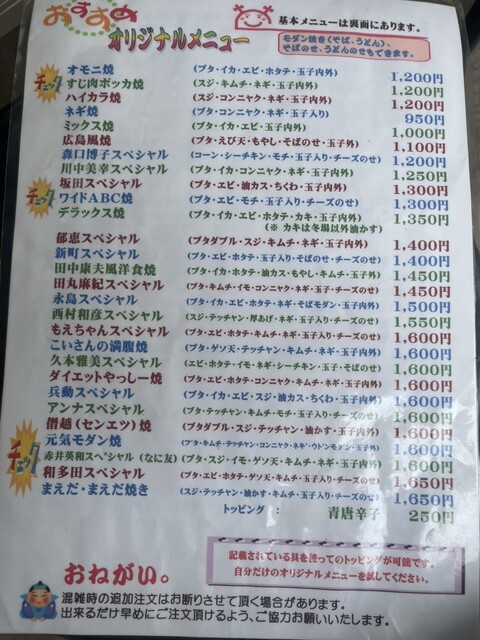 おすすめ
オリジナルメニュー
基本メニューは裏面にあります。
モダン焼き(そば、うどん)、
そばのせ、うどんのせもできます。
チェック
オモニ焼 (ブタ・イカ・エビ・ホタテ・玉子内外) 1,200円
すじ肉ポッカ焼 (スジ・キムチ・ネギ・玉子内外) 1,200円
ハイカラ焼 (スジ・コンニャク・ネギ・玉子内外) 1,200円
ネギ焼 (ブタ・コンニャク・ネギ・玉子入り) 950円
ミックス焼 (ブタ・イカ・エビ・玉子内外) 1,000円
広島風焼 (ブタ・えび天・もやし・そばのせ・玉子外) 1,100円
森口博子スペシャル (コーン・シーチキン・モチ・玉子入り・チーズのせ) 1,200円
川中美幸スペシャル (ブタ・イカ・コンニャク・ネギ・玉子内外) 1,250円
坂田スペシャル (ブタ・エビ・油カス・ちくわ・玉子内外) 1,300円
チェック
ワイドABC焼 (ブタ・イカ・エビ・モチ・玉子入り・チーズのせ) 1,300円
デラックス焼 (ブタ・イカ・エビ・ホタテ・カキ・玉子内外) 1,350円
(※ カキは冬場以外油かす)
郁恵スペシャル (ブタダブル・スジ・キムチ・ネギ・玉子内外) 1,400円
新町スペシャル (ブタ・イカ・エビ・玉子入り・そばのせ・チーズのせ) 1,400円
田中康夫風洋食焼 (ブタ・イカ・ホタテ・油カス・もやし・キムチ・玉子外) 1,450円
田丸麻紀スペシャル (ブタ・キムチ・イモ・コンニャク・ネギ・玉子・チーズ) 1,450円
永島スペシャル (ブタ・イカ・エビ・ホタテ・ネギ・そばモダン・玉子内) 1,500円
西村和彦スペシャル (スジ・テッチャン・厚あげ・ネギ・玉子入り・チーズのせ) 1,550円
もえちゃんスペシャル (ブタ・エビ・ホタテ・キムチ・ネギ・玉子入り・チーズのせ) 1,600円
こいさんの満腹焼 (ブタ・ゲソ天・テッチャン・キムチ・ネギ・玉子内外) 1,600円
久本雅美スペシャル (エビ・ホタテ・イモ・ネギ・シーチキン・玉子・そばのせ) 1,600円
ダイエットやっしー焼 (ブタ・エビ・ホタテ・コンニャク・キムチ・ネギ・玉子内外) 1,600円
兵動スペシャル (ブタ・イカ・エビ・スジ・油カス・ちくわ・玉子内外) 1,600円
アンナスペシャル (ブタ・テッチャン・キムチ・モチ・ネギ・玉子入り・チーズのせ) 1,600円
僭越(センエツ)焼 (ブタダブル・スジ・テッチャン・油かす・玉子内外) 1,600円
チェック
元気モダン焼 (ブタ・キムチ・テッチャン・コンニャク・ネギ・ウドンモダン・玉子内外) 1,600円
赤井英和スペシャル(なに友) (ブタ・スジ・イモ・ゲソ天・キムチ・ネギ・玉子内外) 1,600円
和多田スペシャル (ブタ・エビ・ホタテ・油かす・ネギ・玉子入り・チーズのせ) 1,650円
まえだ・まえだ焼き (スジ・テッチャン・油かす・キムチ・玉子入り・チーズのせ) 1,650円
トッピング : 青唐辛子 250円
記載されている具を使ってのトッピングが可能です。
自分だけのオリジナルメニューを試してください。
おねがい。
混雑時の追加注文はお断りさせて頂く場合があります。
出来るだけ早めにご注文頂けるよう、ご協力お願いいたします。